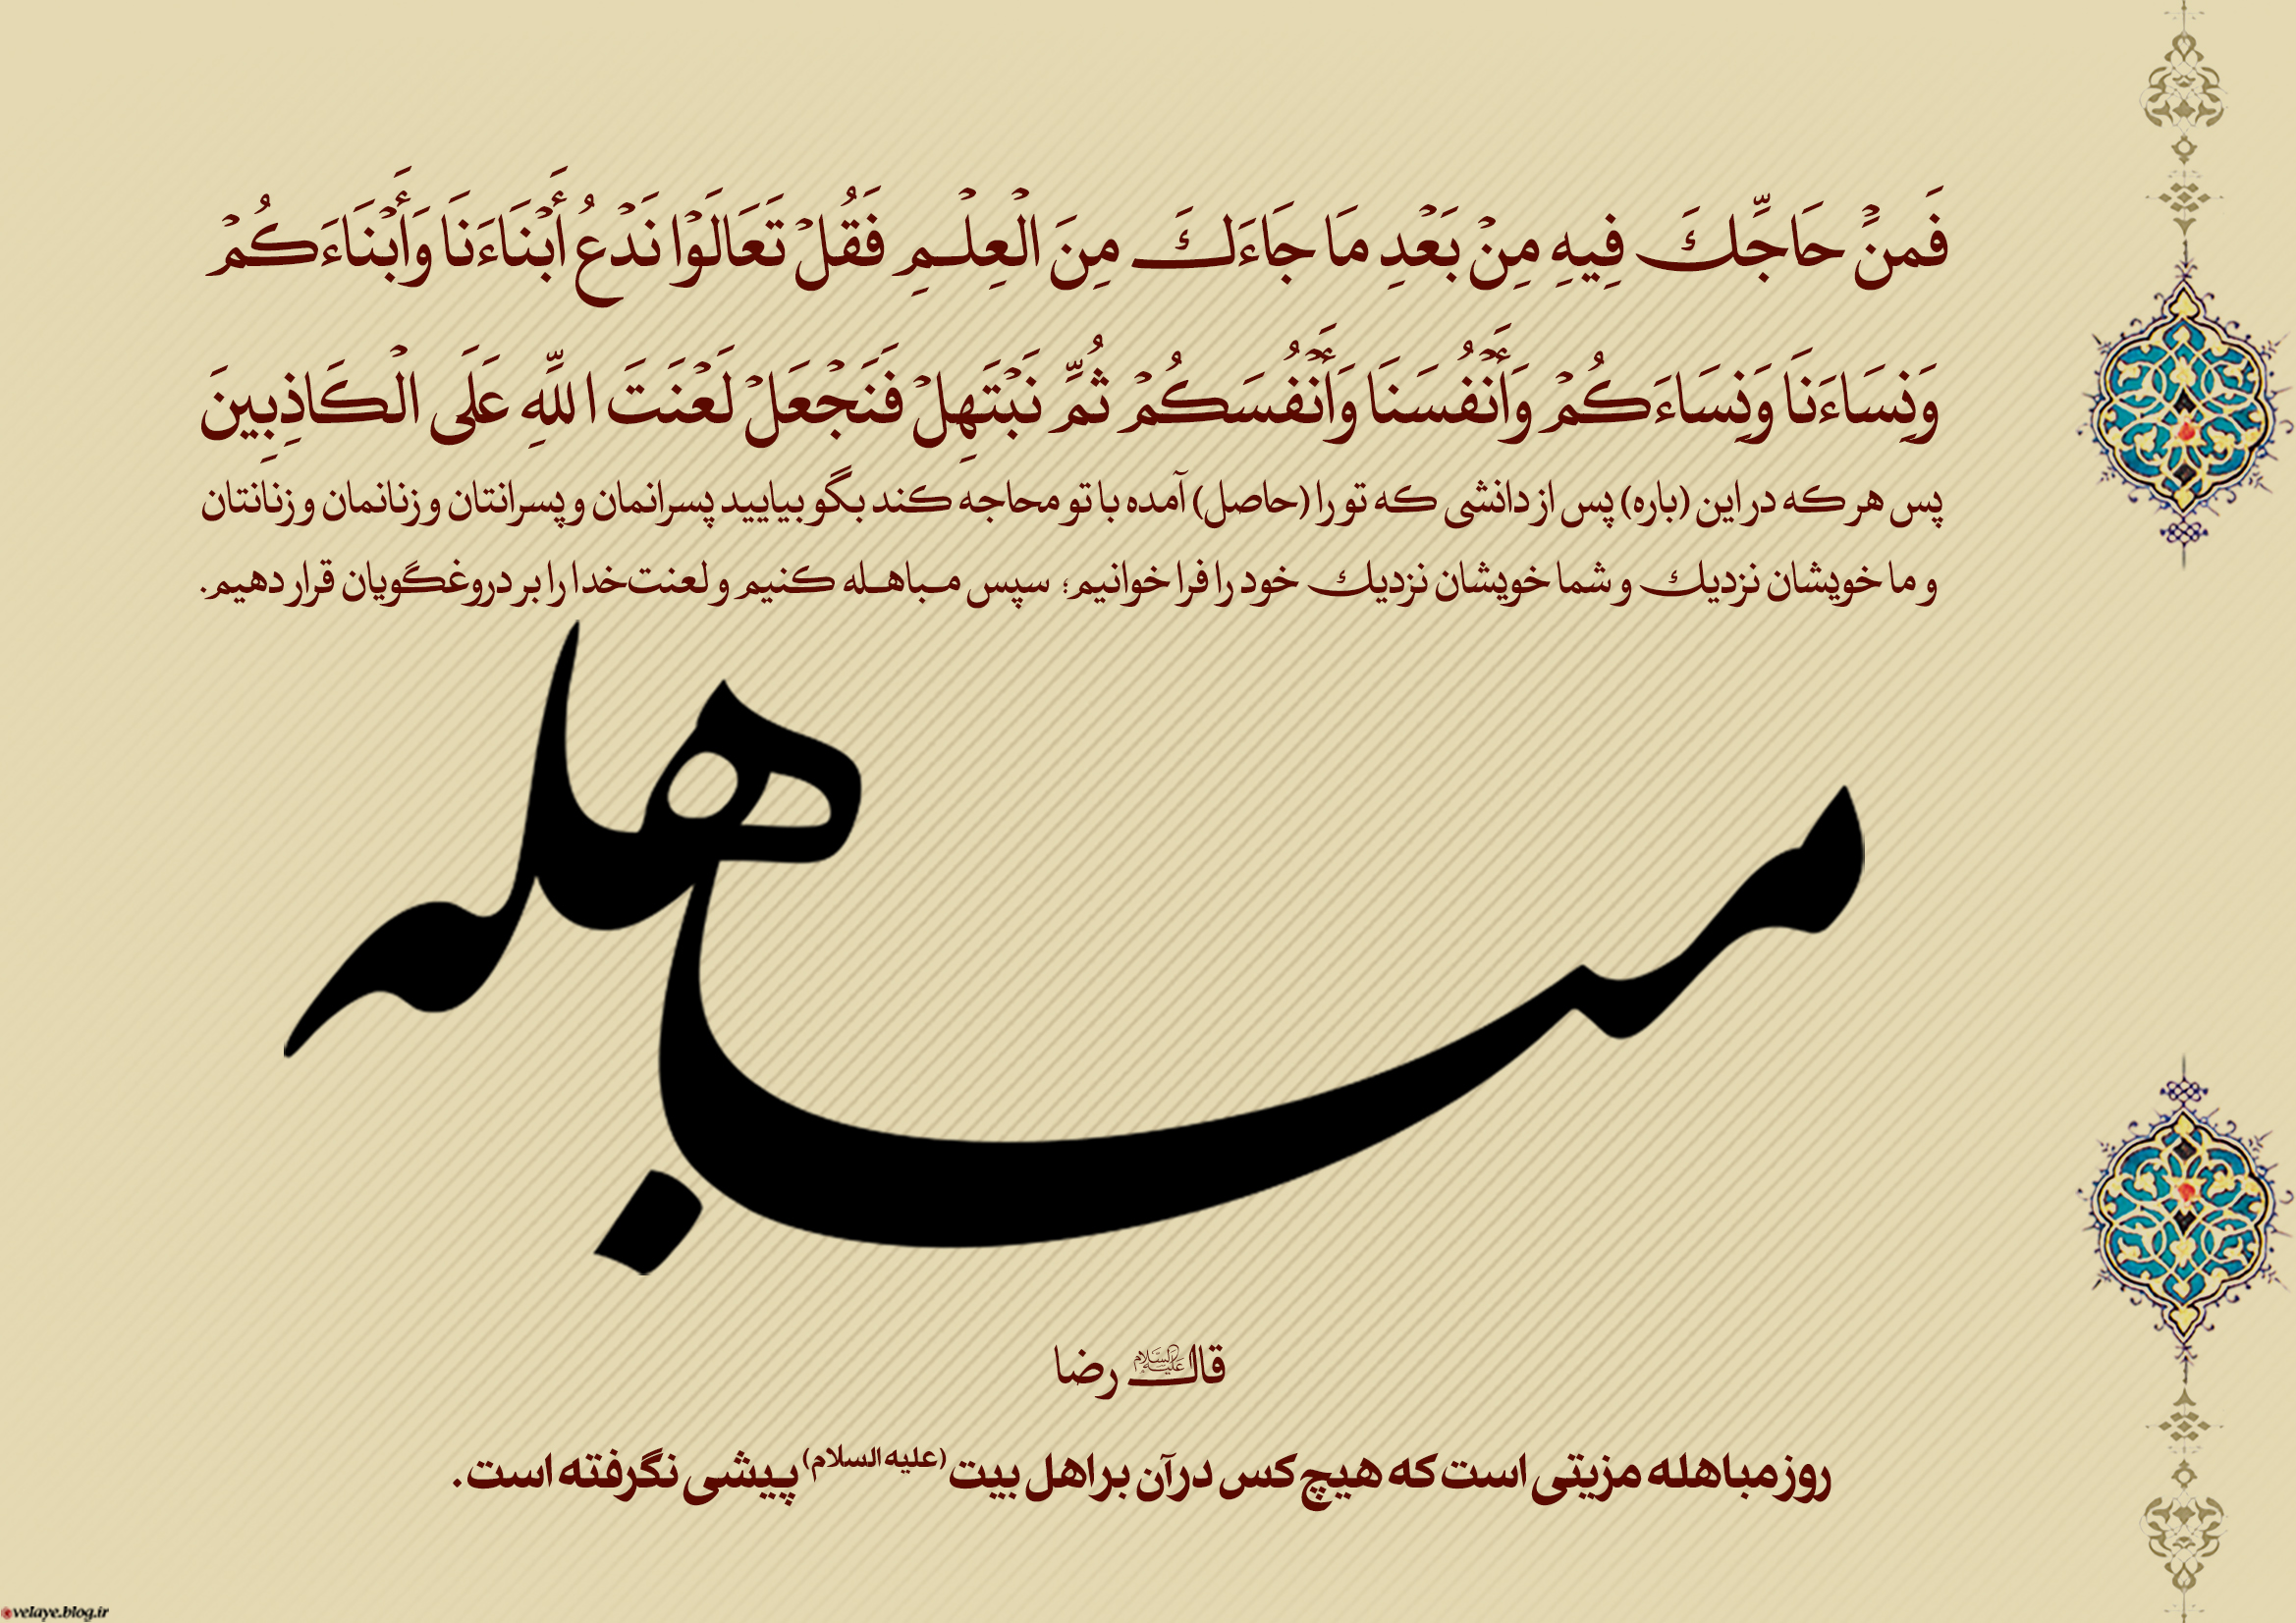 فَمَنْ حَاجَّكَ فِيهِ مِنْ بَعْدِ مَا جَاءَكَ مِنَ الْعِلْمِ فَقُلْ تَعَالَوْا نَدْعُ أَبْنَاءَنَا وَأَبْنَاءَكُمْ
وَنِسَاءَنَا وَنِسَاءَكُمْ وَأَنْفُسَنَا وَأَنْفُسَكُمْ ثُمَّ نَبْتَهِلْ فَنَجْعَلْ لَعْنَتَ اللَّهِ عَلَى الْكَاذِبِينَ
پس هر که در این (باره) پس از دانشی که تو را (حاصل) آمده با تو محاجه کند بگو بیایید پسرانمان و پسرانتان و زنانمان و زنانتان
و ما خویشان نزدیك و شما خویشان نزدیك خود را فرا خوانیم؛ سپس مباهله کنیم و لعنت خدا را بر دروغگویان قرار دهیم.
مباهله
قال علیه السلام رضا
روز مباهله مزیتی است که هیچ کس در آن بر اهل بیت (علیه السلام) پیشی نگرفته است.
velaye.blog.ir